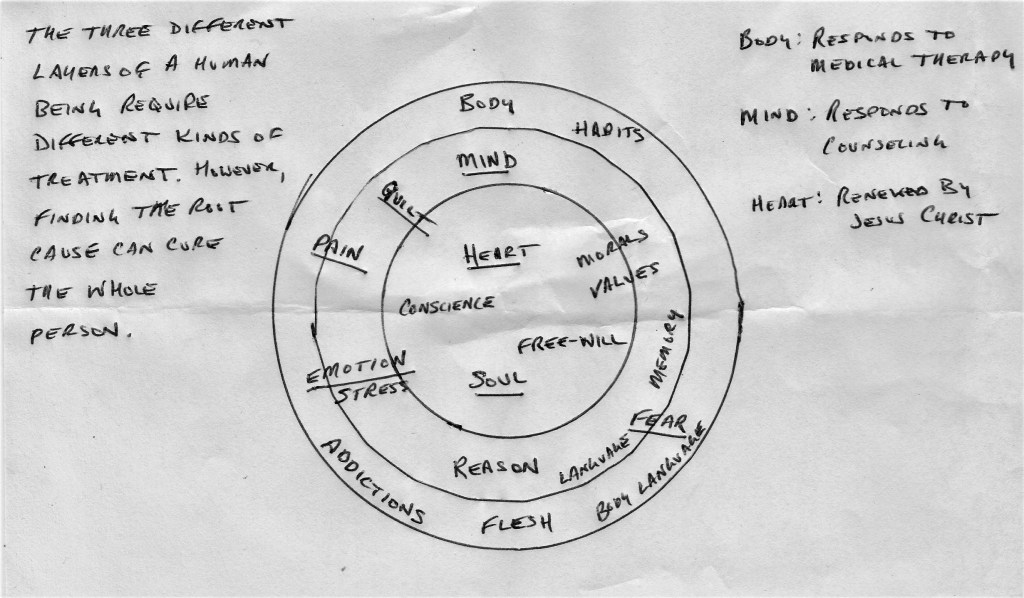 THE THREE DIFFERENT
LAYERS OF A HUMAN
BEING REQUIRE
DIFFERENT KINDS OF
TREATMENT. HOWEVER,
FINDING THE ROOT
CAUSE CAN CURE
THE WHOLE
PERSON.
BODY: RESPONDS TO
MEDICAL THERAPY
MIND: RESPONDS TO
COUNSELING
HEART: RENEWED BY
JESUS CHRIST
BODY
HABITS
MIND
GUILT
PAIN
HEART
MORALS
VALUES
CONSCIENCE
FREE-WILL
MEMORY
EMOTION
STRESS
SOUL
FEAR
REASON
LANGUAGE
ADDICTIONS
FLESH
BODY LANGUAGE